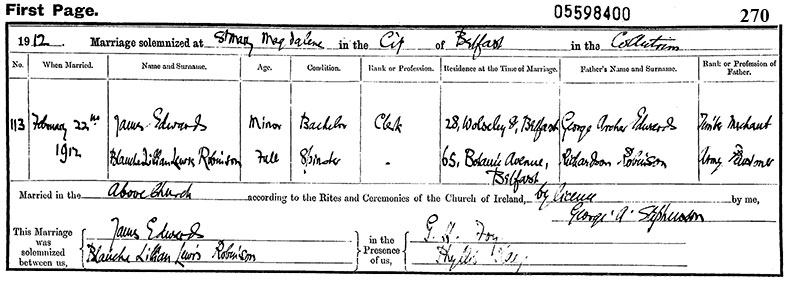 First Page.
05598400
270
1912 Marriage solemnized at St Mary Magdalene in the City of Belfast in the Co Antrim
No. When Married. Name and Surname. Age. Condition. Rank or Profession. Residence at the Time of Marriage. Father's Name and Surname. Rank or Profession of Father.
113 February 22nd James Edwards Minor Bachelor Clerk 28, Wolseley St, Belfast George Archer Edwards Timber Merchant
1912 Blanche Lillian Lewis Robinson Full Spinster - 65, Botanic Avenue, Belfast Richardson Robinson Army Pensioner
Married in the above Church according to the Rites and Ceremonies of the Church of Ireland, by licence by me,
George A. Stephenson
This Marriage was solemnized between us, James Edwards
Blanche Lillian Lewis Robinson
in the Presence of us, G. H. Foy
Phyllis